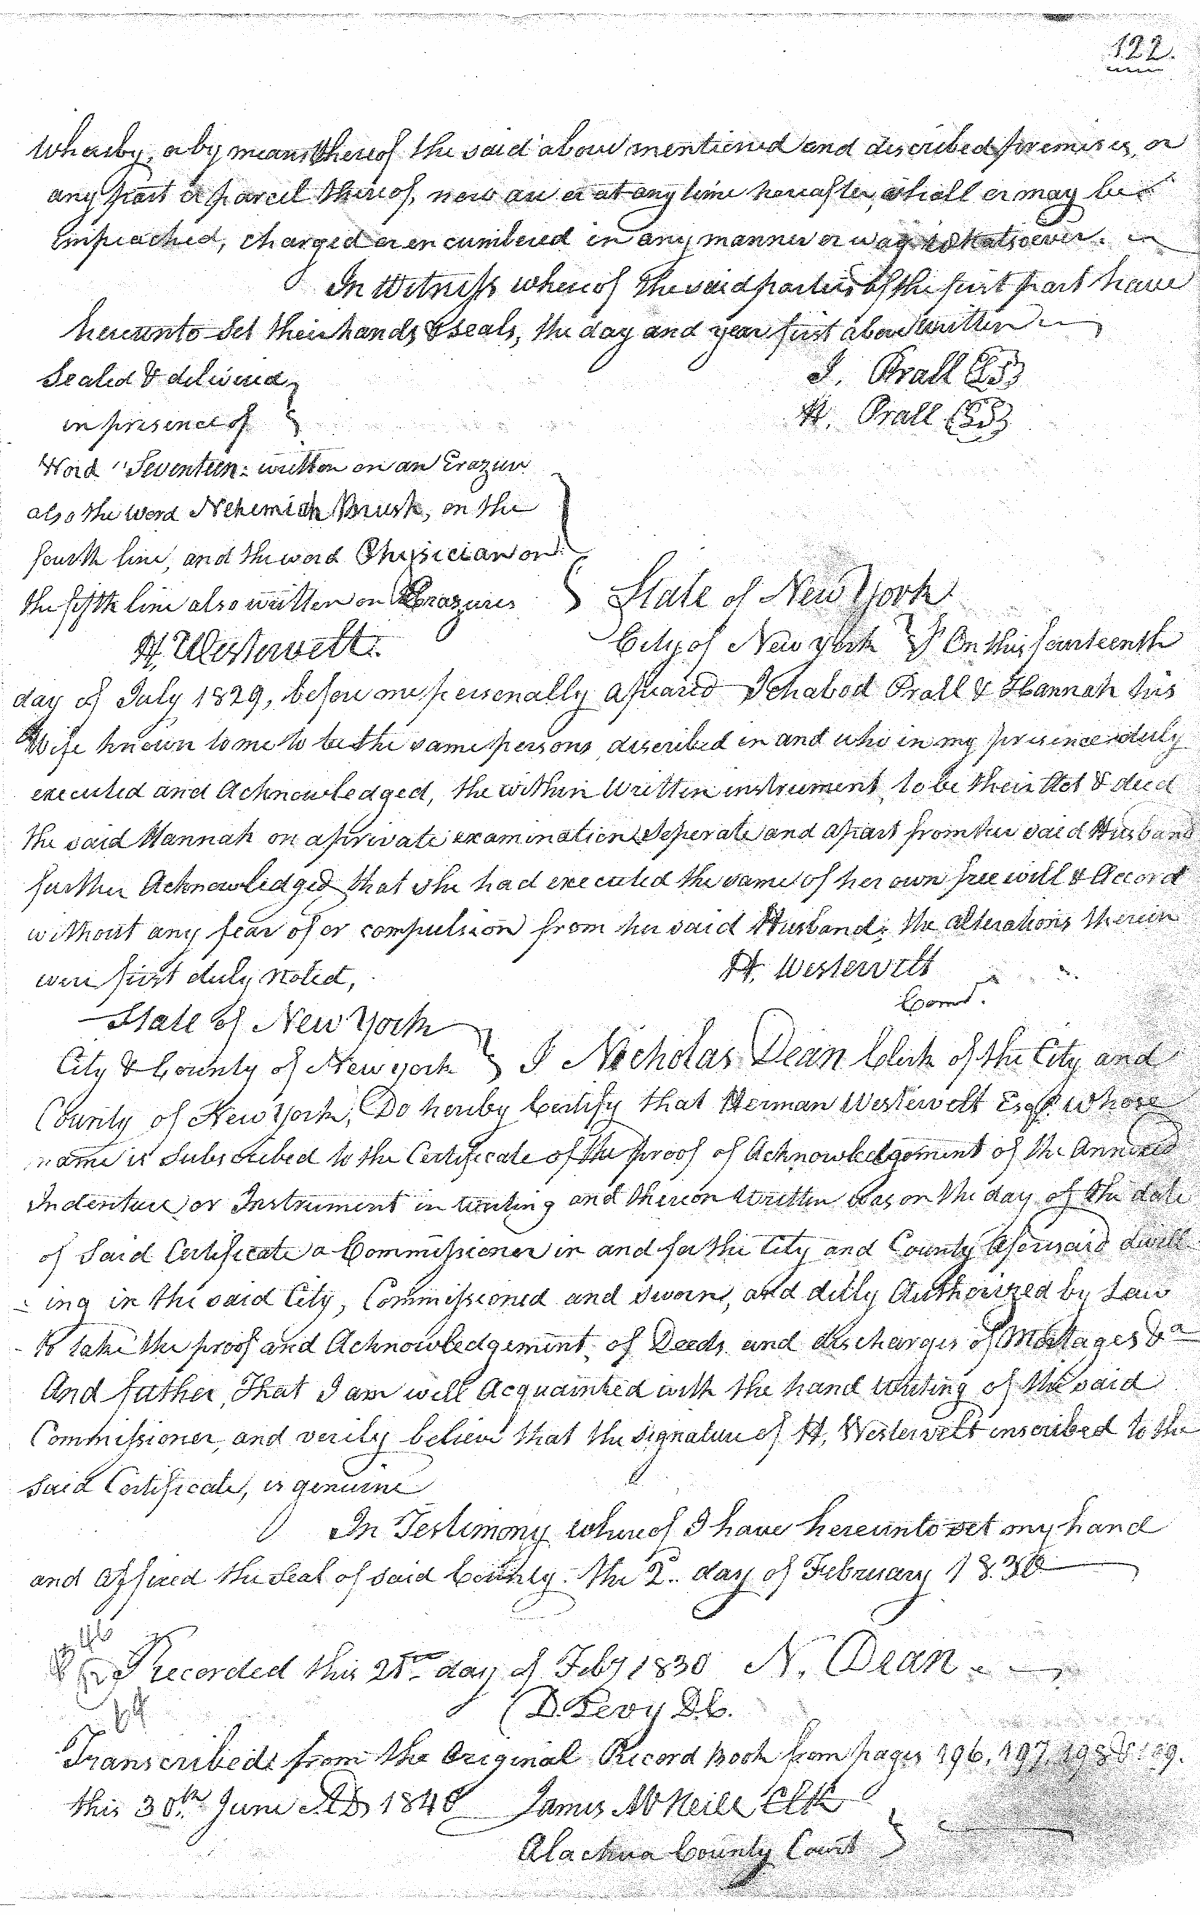 122.
whereby, or by means thereof the said above mentioned and discribed premises, or
any part or parcel thereof, now are or at any time hereafter, shall or may be
impeached, charged or encumbered in any manner or way whatsoever.
In Witness whereof the said parties of the first part have
hereunto set their hands & seals, the day and year first above written
Sealed & delivered
in presence of
I. Prall (LS)
H. Prall (LS)
Word "Seventeen" written on an Erazure
also the word Nehemiah Brush, on the
fourth line, and the word Physician on
the fifth line also written on Erazures
H. Westervelt.
State of New York
City of New York } On this fourteenth
day of July 1829, before me personally apeared Ichabod Prall & Hannah his
Wife known to me to be the same persons, discribed in and who in my presence duly
executed and Acknowledged, the within Written instrument, to be their Act & deed
the said Hannah on a private examination Seperate and apart from her said Husband
further Acknowledged that she had executed the same of her own free will & Accord
without any fear of or compulsion from her said Husband; the alterations therein
were first duly noted,
H. Westervelt
Comr.
State of New York
City & County of New York } I Nicholas Dean Clerk of the City and
County of New York, Do hereby Certify that Herman Westervelt Esqr. whose
name is Subscribed to the Certificate of the proof of Acknowledgement of the Annexed
Indenture or Instrument in writing and thereon Written was on the day of the date
of said Certificate a Commissioner in and for the City and County aforesaid dwell
-ing in the said City, Commissioned and sworn, and dully Authorized by Law
to take the proof and Acknowledgement, of Deeds and discharges of Mortages &a
And futher, That I am well Acquainted with the hand writing of the said
Commissioner, and verily believe that the signature of H. Westervelt inscribed to the
said Certificate, is genuine
In Testimony whereof I have hereunto set my hand
and affixed the Seal of said County. the 2d. day of February 1830
46
Recorded this 21st day of Feby 1830 N. Dean
64
D. Levy D.C.
Transcribed from the Original Record Book from pages 196, 197, 198 & 199.
this 30th June AD 1840 James McNeill Clk
Alachua County Court